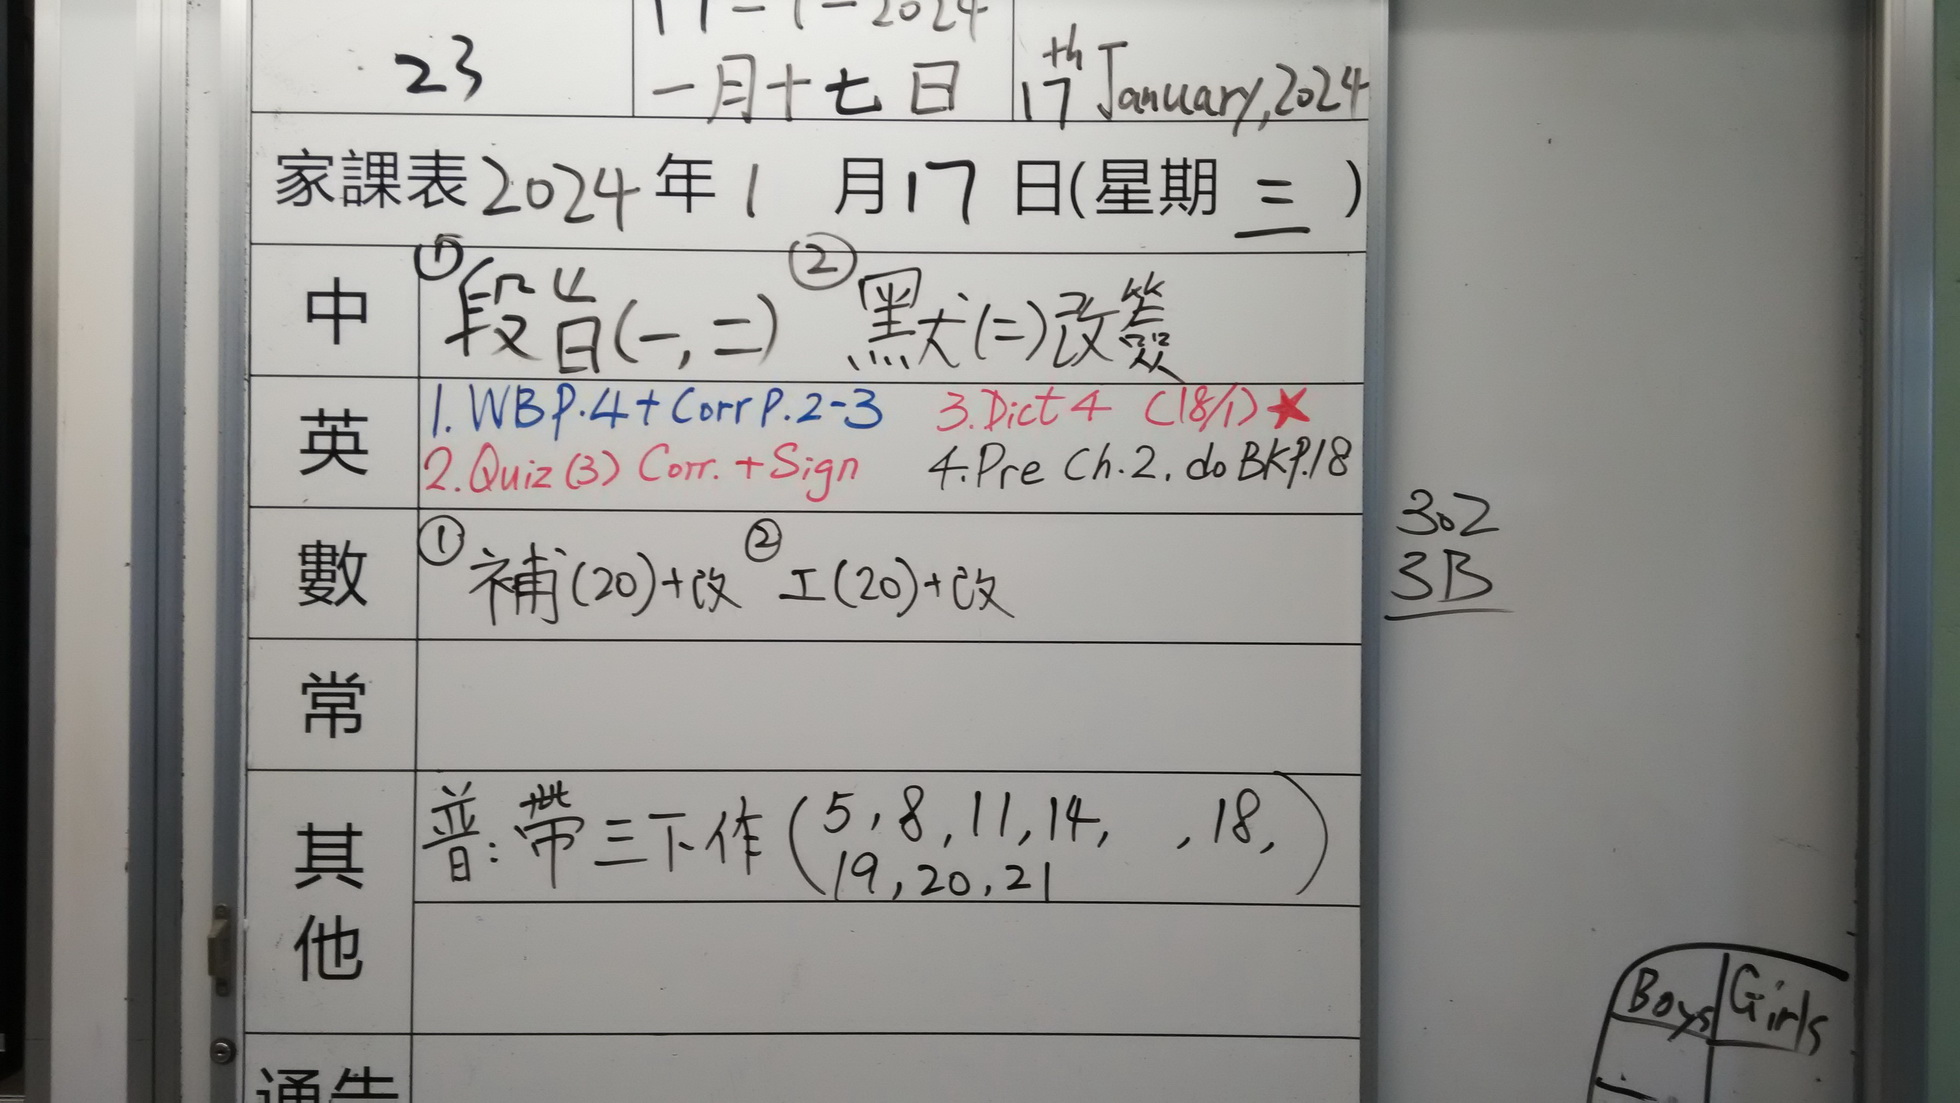 23
17-1-2024
一月十七日
17th January, 2024
家課表 2024 年 1 月 17 日(星期 三 )
中
① 段旨(一,二) ② 默(二)改簽
英
1. WB P.4 + Corr P.2-3 3. Dict 4 (18/1) ★
2. Quiz (3) Corr. + Sign 4. Pre Ch.2, do BK P.18
數
① 補(20)+改 ② 工(20)+改
302
3B
常
其他
普:帶三下作(5, 8, 11, 14, , 18,
19, 20, 21)
Boys Girls
通告